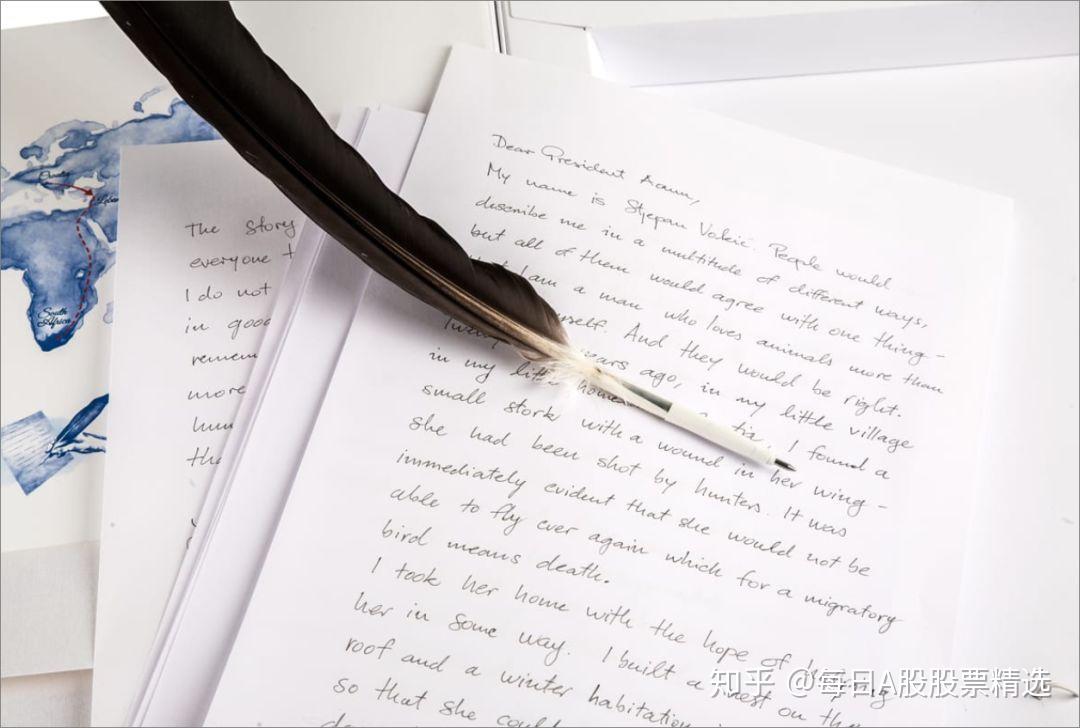 Croatia
Leban
South
Africa
The story
everyone t
I do not
in good
remem
more
hum
tha
Dear President Aoun,
My name is Stjepan Vokić. People would
describe me in a multitude of different ways,
but all of them would agree with one thing -
I am a man who loves animals more than
myself. And they would be right.
Twenty years ago, in my little village
in my little home I found a
small stork with a wound in her wing -
she had been shot by hunters. It was
immediately evident that she would not be
able to fly ever again which for a migratory
bird means death.
I took her home with the hope of helping
her in some way. I built a nest on the
roof and a winter habitation
so that she could
知乎 @每日A股股票精选